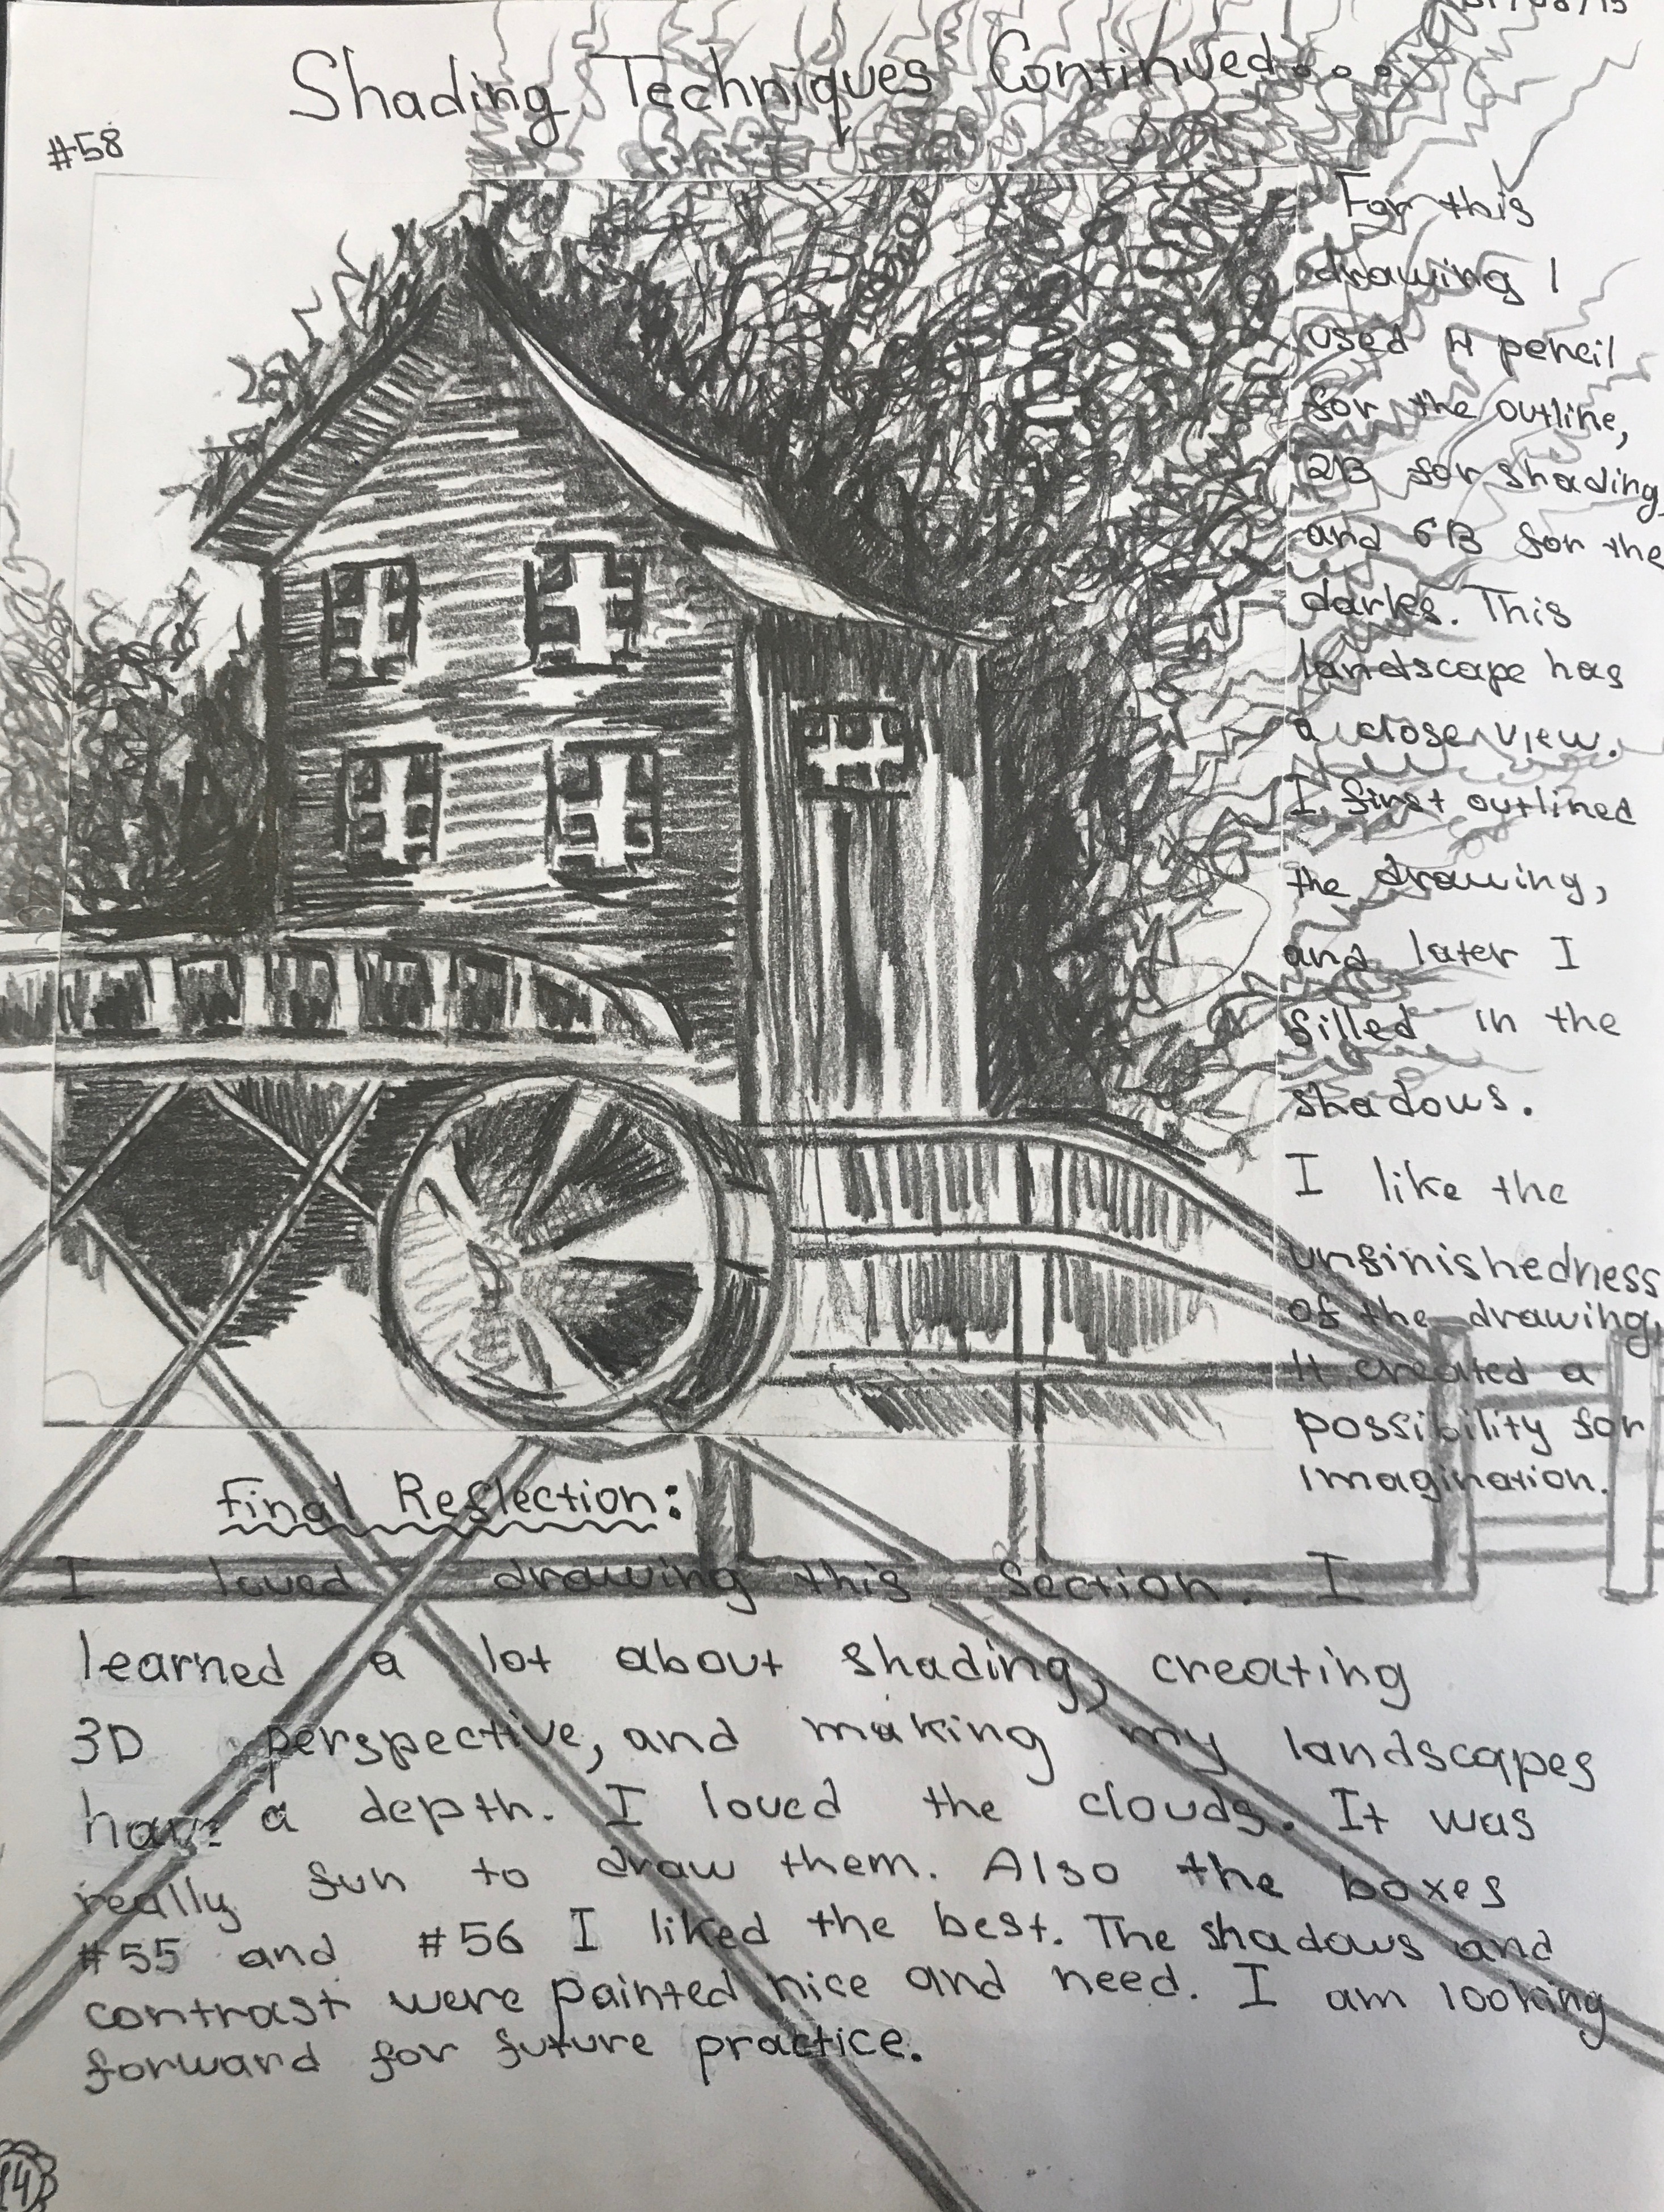 Shading Techniques Continued...
#58
For this
drawing I
used H pencil
for the outline,
2B for shading,
and 6B for the
darks. This
landscape has
a close view.
I first outlined
the drawing,
and later I
filled in the
shadows.
I like the
unfinishedness
of the drawing,
It created a
possibility for
imagination.
Final Reflection:
I loved drawing this section. I
learned a lot about shading, creating
3D perspective, and making my landscapes
have a depth. I loved the clouds. It was
really fun to draw them. Also the boxes
#55 and #56 I liked the best. The shadows and
contrast were painted nice and need. I am looking
forward for future practice.